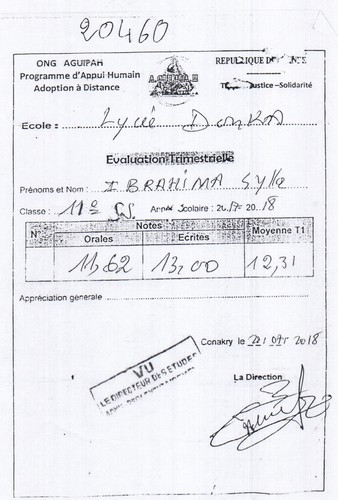 20460
ONG AGUIPAH
Programme d'Appui Humain
Adoption à Distance
REPUBLIQUE
Justice –Solidarité
Ecole : Lycée Donka
Evaluation Trimestrielle
Prénoms et Nom : IBRAHIMA Sylla
Classe : 11e Année Scolaire : 2017- 2018
N° Notes Moyenne T1
Orales Ecrites
11,62 13,00 12,31
Appréciation générale
Conakry le 2018
VU
LE DIRECTEUR DES ETUDES
La Direction